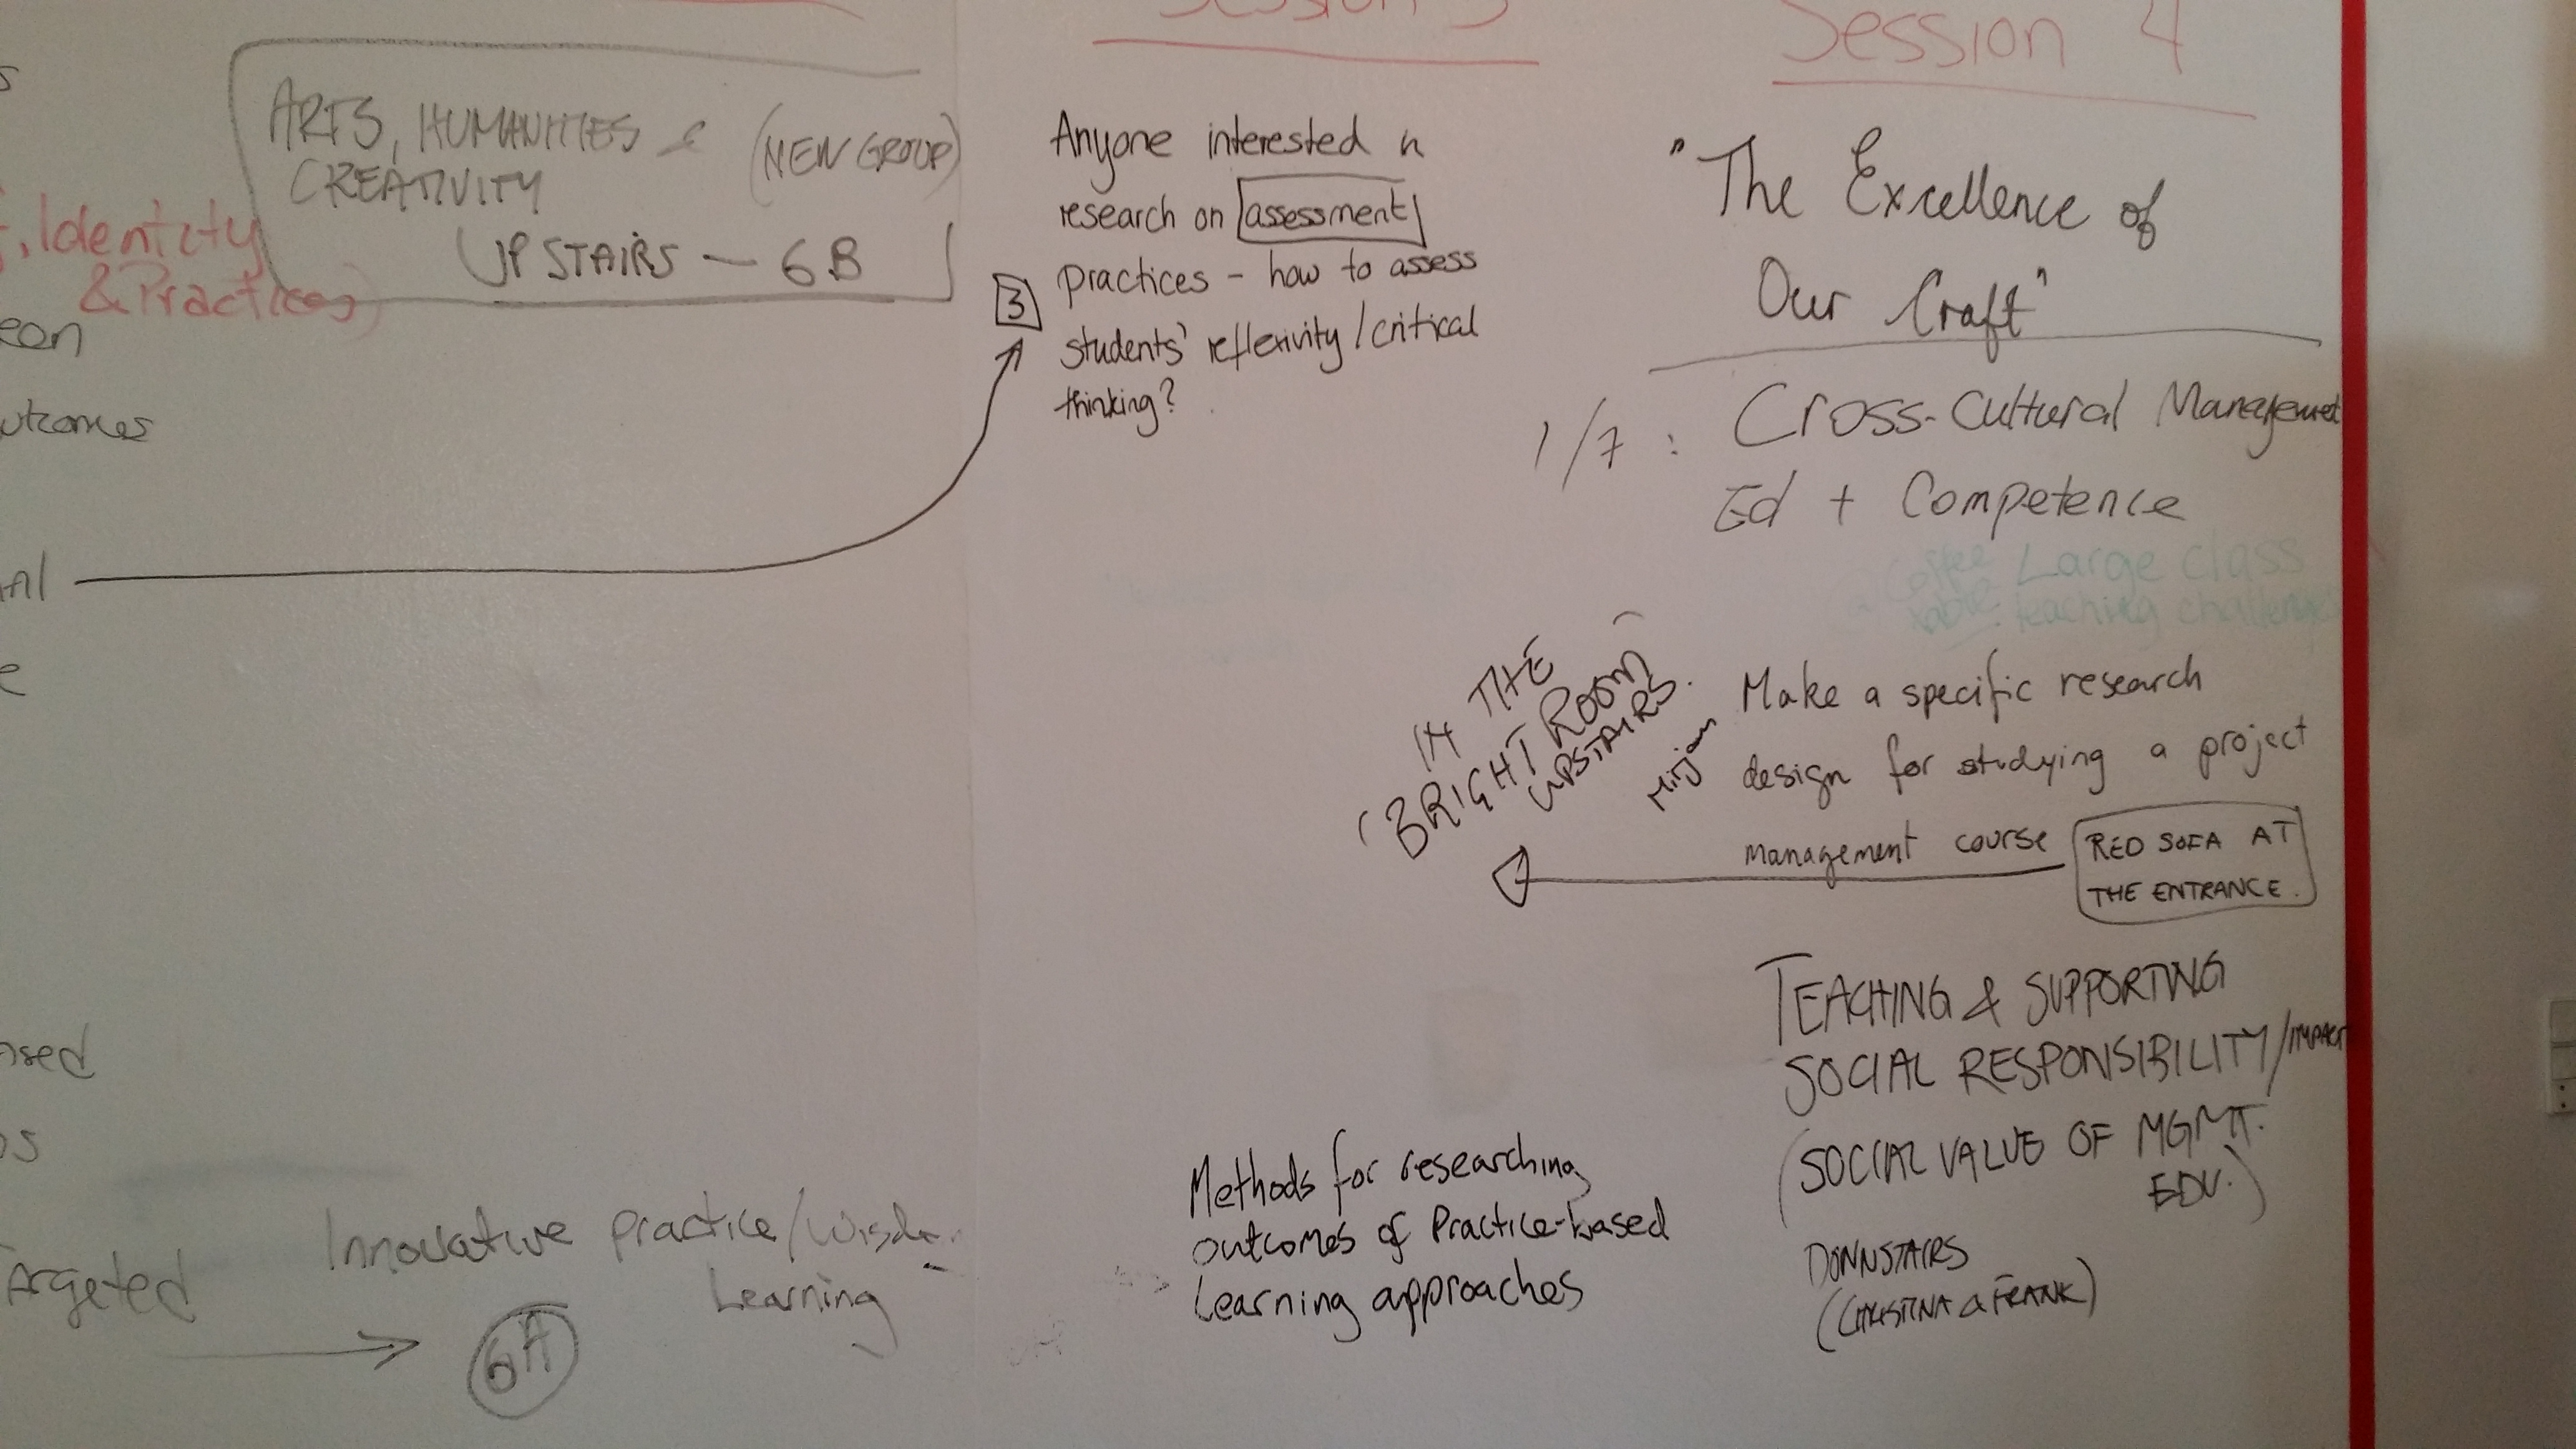 , Identity
& Practices)
ARTS, HUMANITIES &
CREATIVITY
(NEW GROUP)
UPSTAIRS — 6B
Targeted
Innovative practice/
Learning
6A
Session 3
3
Anyone interested in
research on assessment
practices - how to assess
students' reflexivity / critical
thinking?
Methods for researching
outcomes of Practice-based
Learning approaches
Session 4
"The Excellence of
Our Craft"
1/7 : Cross-Cultural Management
Ed + Competence
Coffee Large class
table: teaching challenges
(IN THE
BRIGHT ROOM)
UPSTAIRS.
Mirjam
Make a specific research
design for studying a project
management course
RED SOFA AT
THE ENTRANCE.
TEACHING & SUPPORTING
SOCIAL RESPONSIBILITY/IMPACT
(SOCIAL VALUE OF MGMT.
EDU.)
DOWNSTAIRS
(CHRISTINA & FRANK)